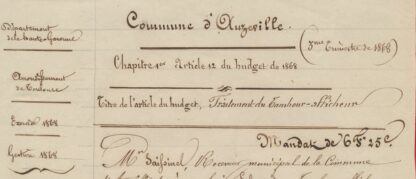 Département
de la haute Garonne
Commune d'Auzeville.
(3me Trimestre de 1868)
Chapitre 1er Article 12 du budget de 1868
Arrondissement
de Toulouse
Titre de l'article du budget, Traitement du Tambour-afficheur
Exercice 1868
Mandat de 6f 25c.
Gestion 1868
Mr Receveur municipal de la Commune